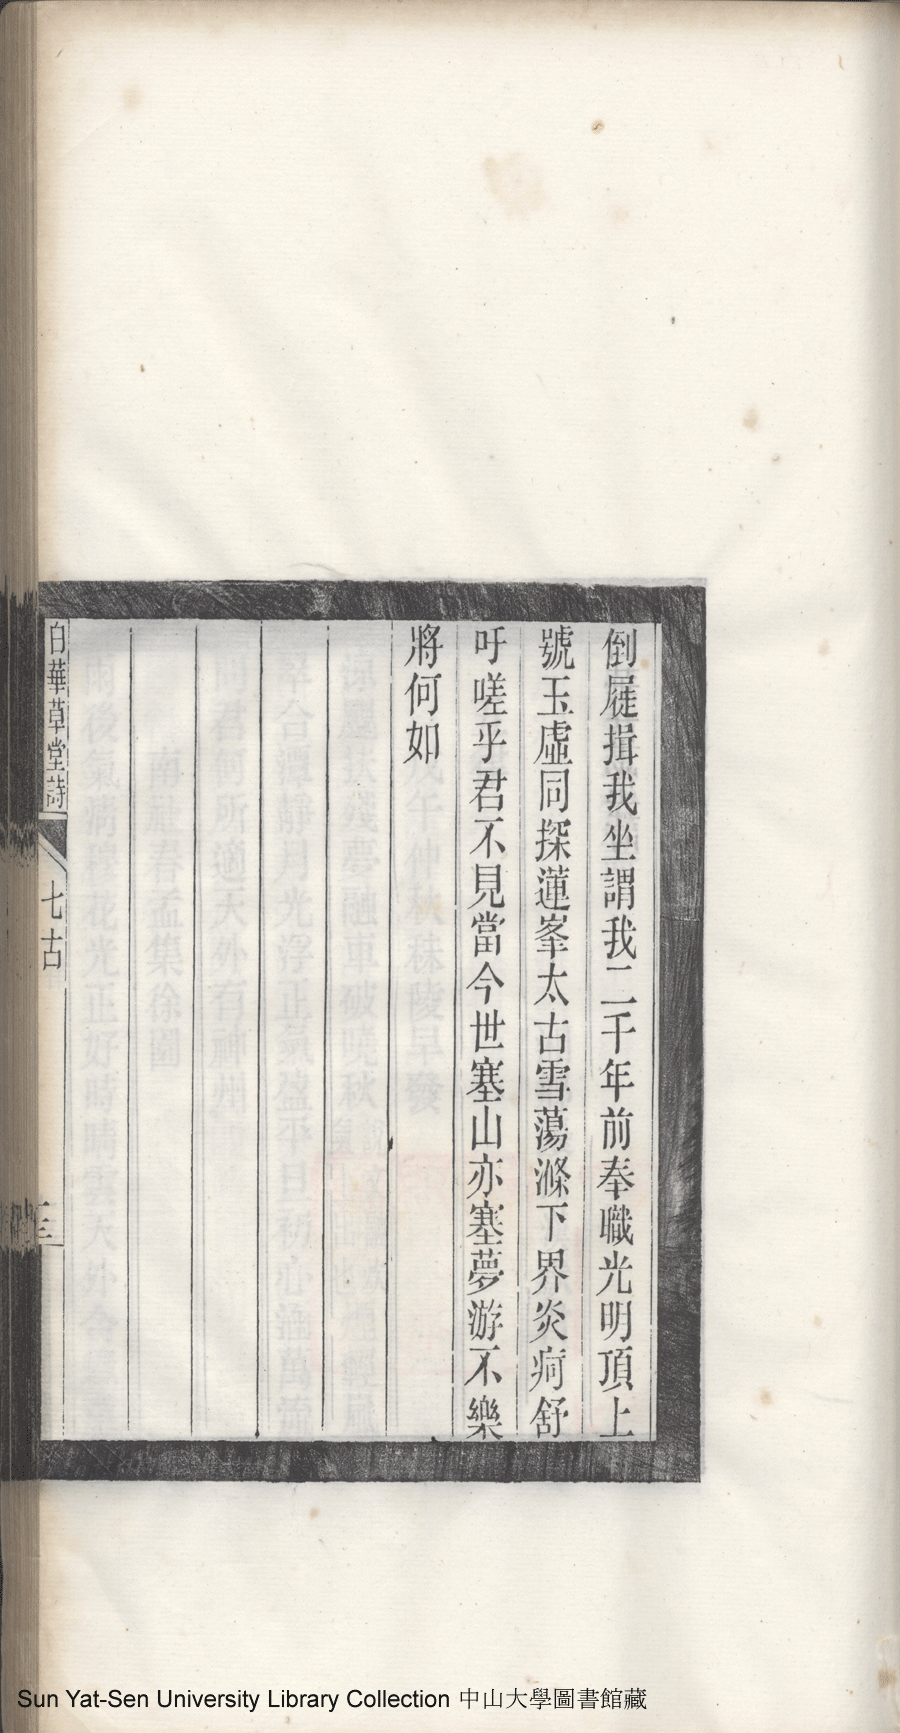 倒屣揖我坐謂我二千年前奉職光明頂上
號玉虛同探蓮峯太古雪蕩滌下界炎痾舒
吁嗟乎君不見當今世塞山亦塞夢游不樂
將何如
白華草堂詩
七古
三
Sun Yat-Sen University Library Collection 中山大學圖書館藏